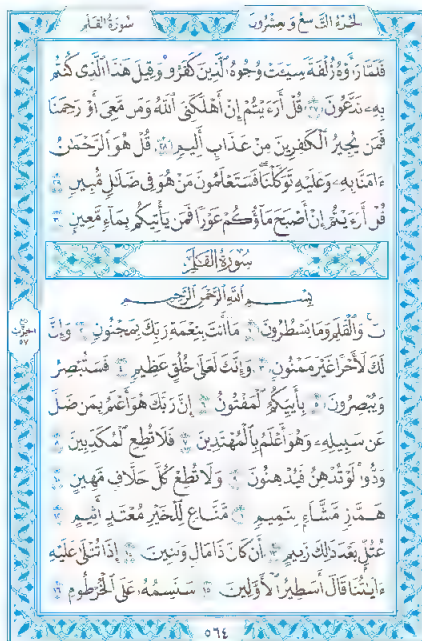 الجزء التاسع وعشرون سورة القلم
فَلَمَّا رَأَوْهُ زُلْفَةً سِيٓـَٔتْ وُجُوهُ ٱلَّذِينَ كَفَرُوا۟ وَقِيلَ هَٰذَا ٱلَّذِى كُنتُم
بِهِۦ تَدَّعُونَ ٢٧ قُلْ أَرَءَيْتُمْ إِنْ أَهْلَكَنِىَ ٱللَّهُ وَمَن مَّعِىَ أَوْ رَحِمَنَا
فَمَن يُجِيرُ ٱلْكَٰفِرِينَ مِنْ عَذَابٍ أَلِيمٍ ٢٨ قُلْ هُوَ ٱلرَّحْمَٰنُ
ءَامَنَّا بِهِۦ وَعَلَيْهِ تَوَكَّلْنَا فَسَتَعْلَمُونَ مَنْ هُوَ فِى ضَلَٰلٍ مُّبِينٍ ٢٩
قُلْ أَرَءَيْتُمْ إِنْ أَصْبَحَ مَآؤُكُمْ غَوْرًا فَمَن يَأْتِيكُم بِمَآءٍ مَّعِينٍۭ ٣٠
سُورَةُ القَلَمِ
بِسْمِ ٱللَّهِ ٱلرَّحْمَٰنِ ٱلرَّحِيمِ
نٓ وَٱلْقَلَمِ وَمَا يَسْطُرُونَ ١ مَآ أَنتَ بِنِعْمَةِ رَبِّكَ بِمَجْنُونٍ ٢ وَإِنَّ
لَكَ لَأَجْرًا غَيْرَ مَمْنُونٍ ٣ وَإِنَّكَ لَعَلَىٰ خُلُقٍ عَظِيمٍ ٤ فَسَتُبْصِرُ
وَيُبْصِرُونَ ٥ بِأَييِّكُمُ ٱلْمَفْتُونُ ٦ إِنَّ رَبَّكَ هُوَ أَعْلَمُ بِمَن ضَلَّ
عَن سَبِيلِهِۦ وَهُوَ أَعْلَمُ بِٱلْمُهْتَدِينَ ٧ فَلَا تُطِعِ ٱلْمُكَذِّبِينَ ٨
وَدُّوا۟ لَوْ تُدْهِنُ فَيُدْهِنُونَ ٩ وَلَا تُطِعْ كُلَّ حَلَّافٍ مَّهِينٍ ١٠
هَمَّازٍ مَّشَّآءٍۭ بِنَمِيمٍ ١١ مَّنَّاعٍ لِّلْخَيْرِ مُعْتَدٍ أَثِيمٍ ١٢
عُتُلٍّۭ بَعْدَ ذَٰلِكَ زَنِيمٍ ١٣ أَن كَانَ ذَا مَالٍ وَبَنِينَ ١٤ إِذَا تُتْلَىٰ عَلَيْهِ
ءَايَٰتُنَا قَالَ أَسَٰطِيرُ ٱلْأَوَّلِينَ ١٥ سَنَسِمُهُۥ عَلَى ٱلْخُرْطُومِ ١٦
الحزب
٥٧
٥٦٤